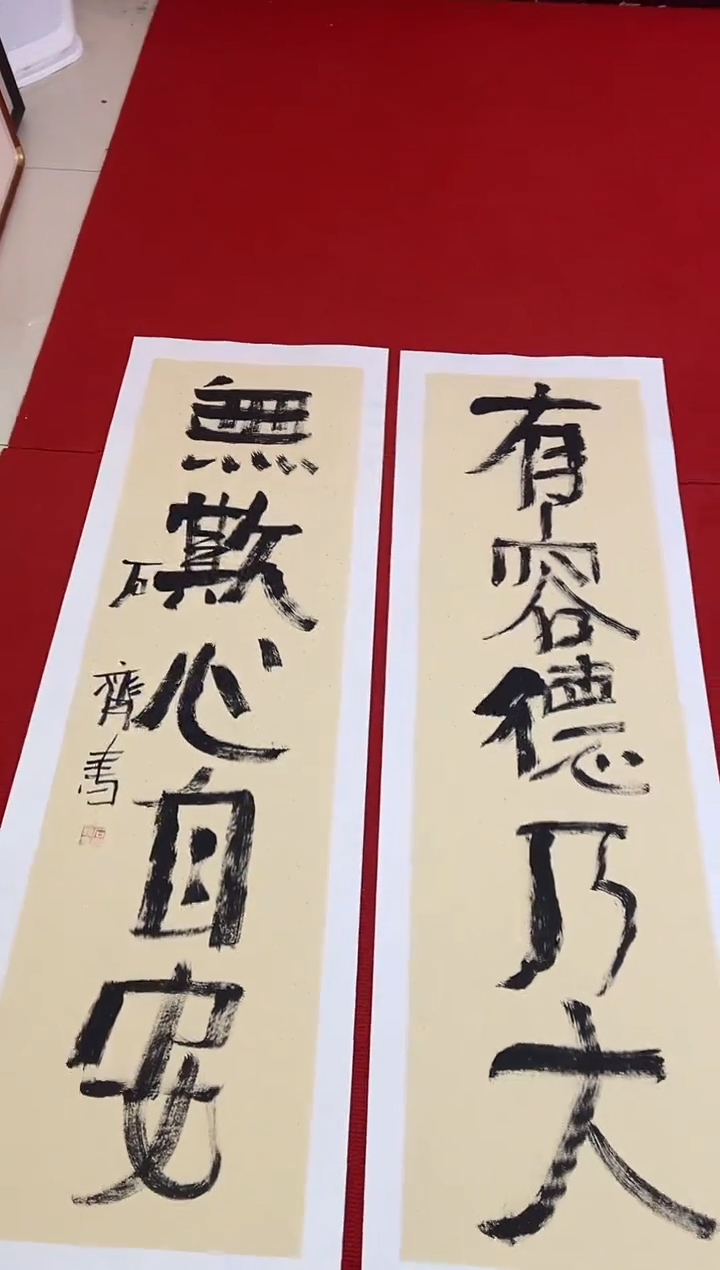 有容德乃大
無欺心自安
石齊書